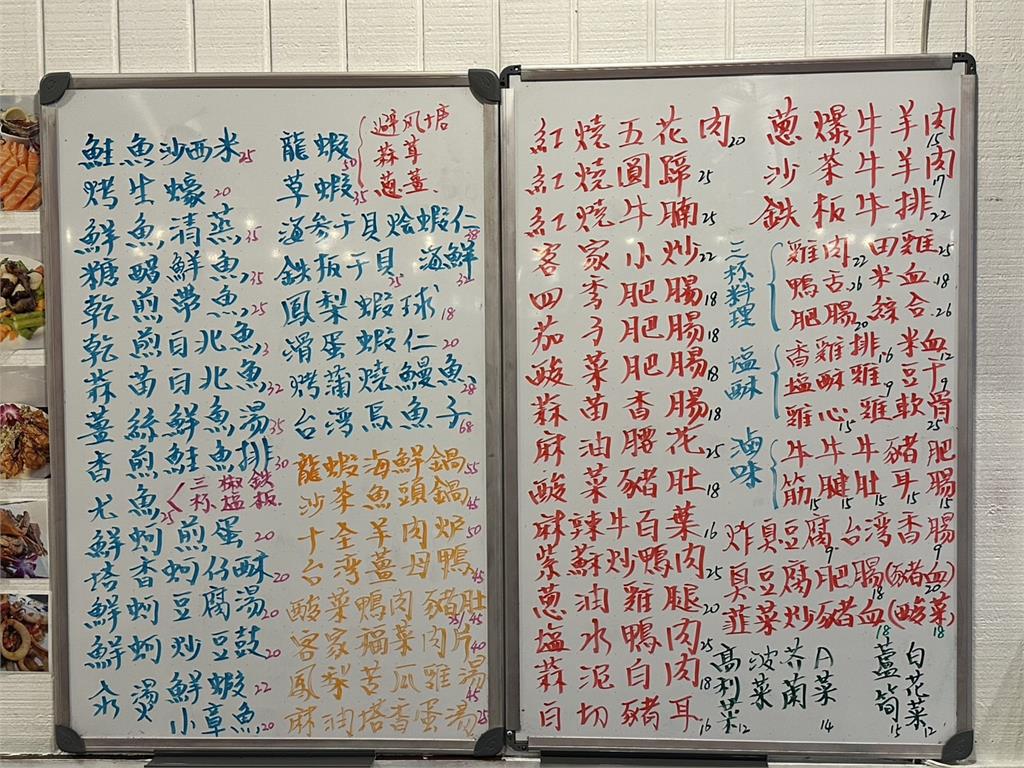 鮭魚沙西米25
烤生蠔20
鮮魚清蒸35
糖醋鮮魚35
乾煎帶魚25
乾煎白北魚
蒜苗白北魚32
薑絲鮮魚湯35
香煎鮭魚排30
尤魚25 三杯 椒塩 鉄板
鮮蚵煎蛋20
塔香蚵仔酥20
鮮蚵豆腐湯20
鮮蚵炒豆鼓20
汆燙鮮蝦22
小章魚20
龍蝦50
草蝦35
避风塘
蒜茸
蔥薑
海参干貝烩蝦仁38
鉄板干貝35 海鮮32
鳳梨蝦球18
滑蛋蝦仁20
烤蒲燒鰻魚28
台湾烏魚子68
龍蝦海鮮鍋55
沙茶魚頭鍋45
十全羊肉炉50
台湾薑母鴨45
酸菜鴨肉 豬肚35/45
客家福菜肉片40
鳳梨苦瓜雞湯45
麻油塔香蛋湯25
紅燒五花肉20
紅燒圓蹄25
紅燒牛腩25
客家小炒22
四季肥腸18
茄子肥腸18
酸菜肥腸18
蒜苗香腸18
麻油腰花25
酸菜豬肚18
麻辣牛百葉16
紫蘇炒鴨肉25
蔥油雞腿20
塩水鴨肉25
蒜泥白肉18
白切豬耳16
蔥爆牛羊肉15
沙茶牛羊肉17
鉄板牛排22
三杯料理
雞肉22 田雞25
鴨舌26 米血18
肥腸20 綜合26
塩酥
香雞排16 米血12
塩酥雞9 豆干9
雞心15 雞軟骨25
滷味
牛筋15 牛腱15 牛肚15 豬耳15 肥腸15
炸臭豆腐9 台湾香腸9
臭豆腐肥腸18(豬血)20
韮菜炒豬血18(酸菜)18
高利菜12
波菜
芥蘭
A菜14
蘆筍15
白花菜12